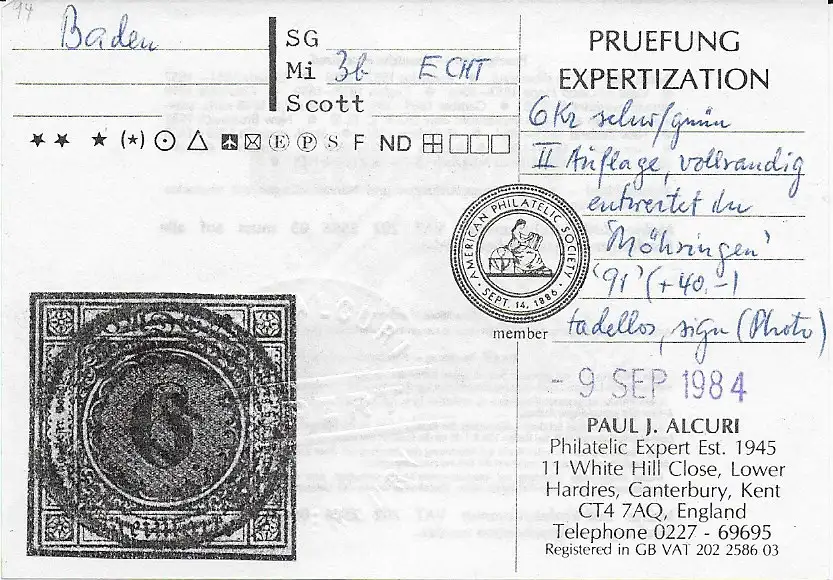 94
Baden
SG
Mi 3b ECHT
Scott
★★ ★ (★) ⊙ △ Ⓔ Ⓟ Ⓢ F ND ⊞ □□□
PRUEFUNG
EXPERTIZATION
6Kr schw/grün
II Auflage, vollrandig
entwertet du
'Möhringen'
'91' (+40.-)
tadellos, sign (Photo)
AMERICAN PHILATELIC SOCIETY
· SEPT. 14, 1886 ·
member
- 9 SEP 1984
PAUL J. ALCURI
Philatelic Expert Est. 1945
11 White Hill Close, Lower
Hardres, Canterbury, Kent
CT4 7AQ, England
Telephone 0227 - 69695
Registered in GB VAT 202 2586 03
6